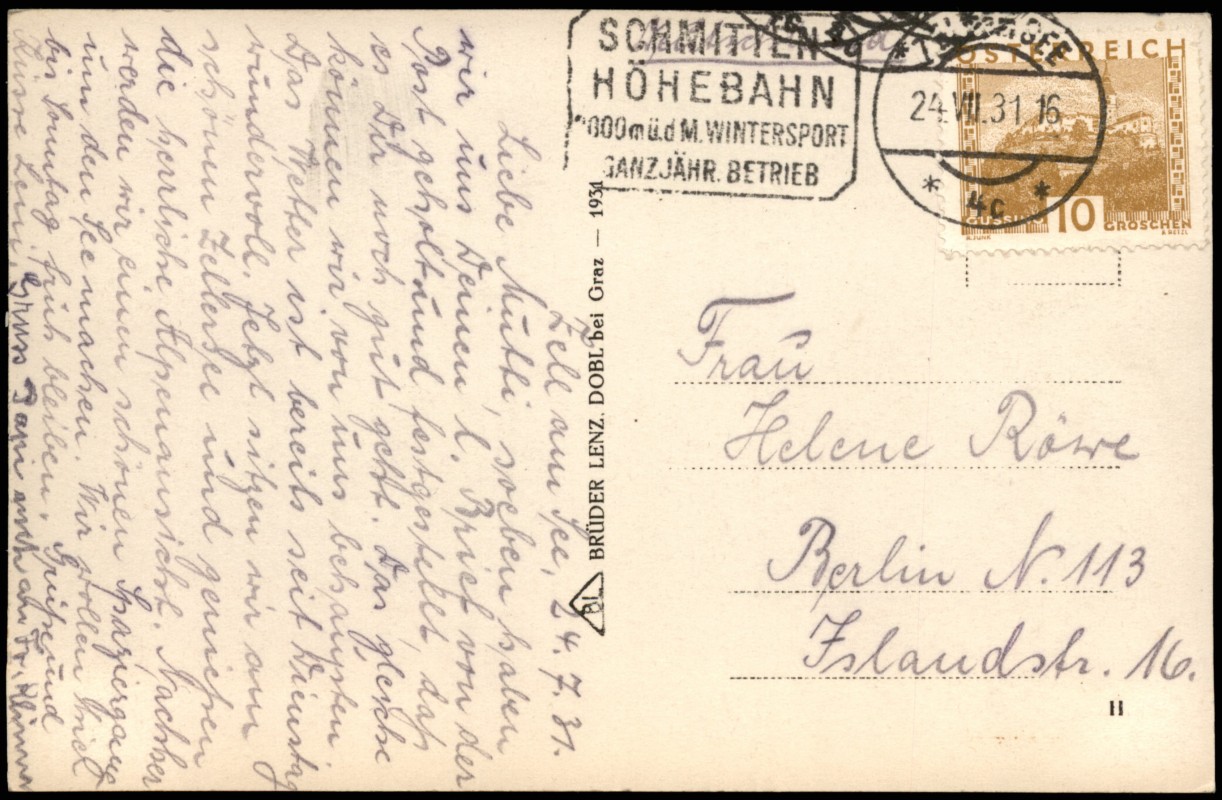 Zell am See, 24.7.31.
Liebe Mutti, soeben haben
wir uns Deinen l. Brief von der
Post geholt und festgestellt, daß
es Dir noch gut geht. Das gleiche
können wir von uns behaupten
Das Wetter ist bereits seit Dienstag
wundervoll. Jetzt sitzen wir am
schönen Zellersee und geniessen
die herrliche Alpenaussicht. Nachher
werden wir einen schönen Spaziergang
um den See machen. Wir wollen
bis Sonntag früh bleiben. Grüße und
Küsse Leni. Gruss auch an Fr.
BRÜDER LENZ, DOBL bei Graz — 1931
BL
SCHMITTEN
HÖHEBAHN
2000 m ü. d M. WINTERSPORT
GANZJÄHR. BETRIEB
24.VII.31 16
* 4c *
ÖSTERREICH
GÜSSING 10 GROSCHEN
Frau
Helene Röwe
Berlin N. 113
Islandstr. 16.
II